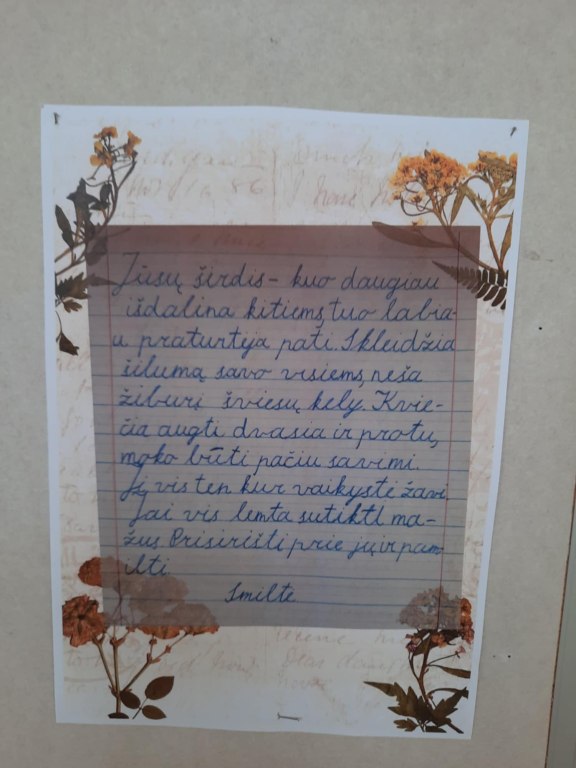 Jūsų širdis - kuo daugiau
išdalina kitiems, tuo labia-
u praturtėja pati. Skleidžia
šilumą savo visiems, neša
žiburį šviesų kely. Kvie-
čia augti dvasia ir protu,
moko būti pačiu savimi.
Ji vis ten kur vaikystė žavi.
Jai vis lemta sutikti ma-
žus. Prisirišti prie jų ir pam
ilti.
Smiltė